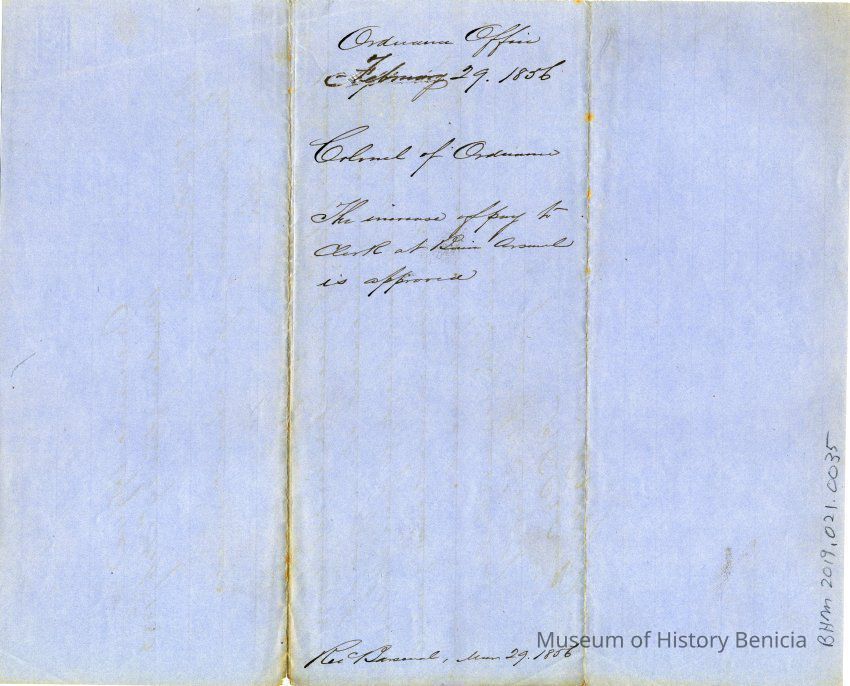 Ordnance Office
February 29. 1856
Colonel of Ordnance
The increase of pay to
Clerk at Arsenal
is approved
Mar. 29. 1856
Museum of History Benicia
BHM 2019.021.0035